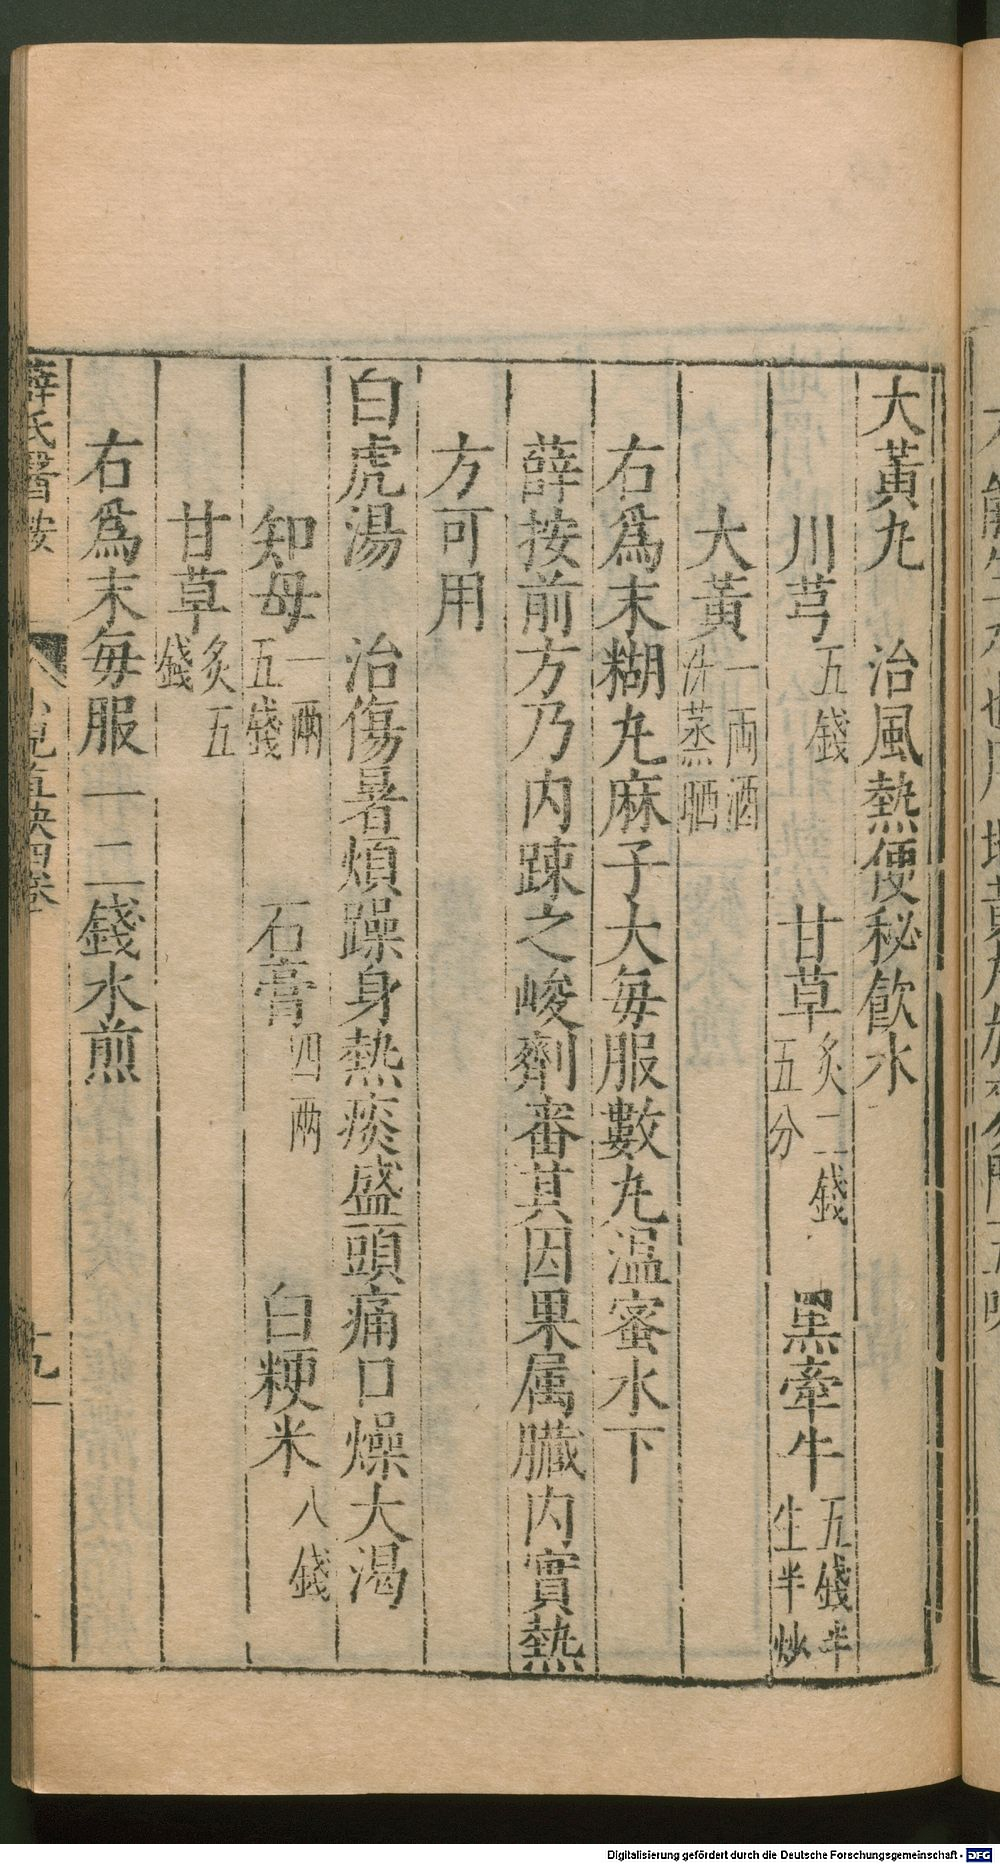 大黃丸　治風熱便秘飲水
川芎五錢　甘草炙二錢五分　黑牽牛五錢半生半炒
大黃一两酒洗蒸晒
右爲末糊丸麻子大每服數丸溫蜜水下
薛按前方乃内踈之峻劑審其因果属臟内實熱
方可用
白虎湯　治傷暑煩躁身熱痰盛頭痛口燥大渴
知母一两五錢　石膏四两　白粳米八錢
甘草炙五錢
右爲末每服一二錢水煎
薛氏醫按　小兒直訣四卷　十九
Digitalisierung gefördert durch die Deutsche Forschungsgemeinschaft - DFG